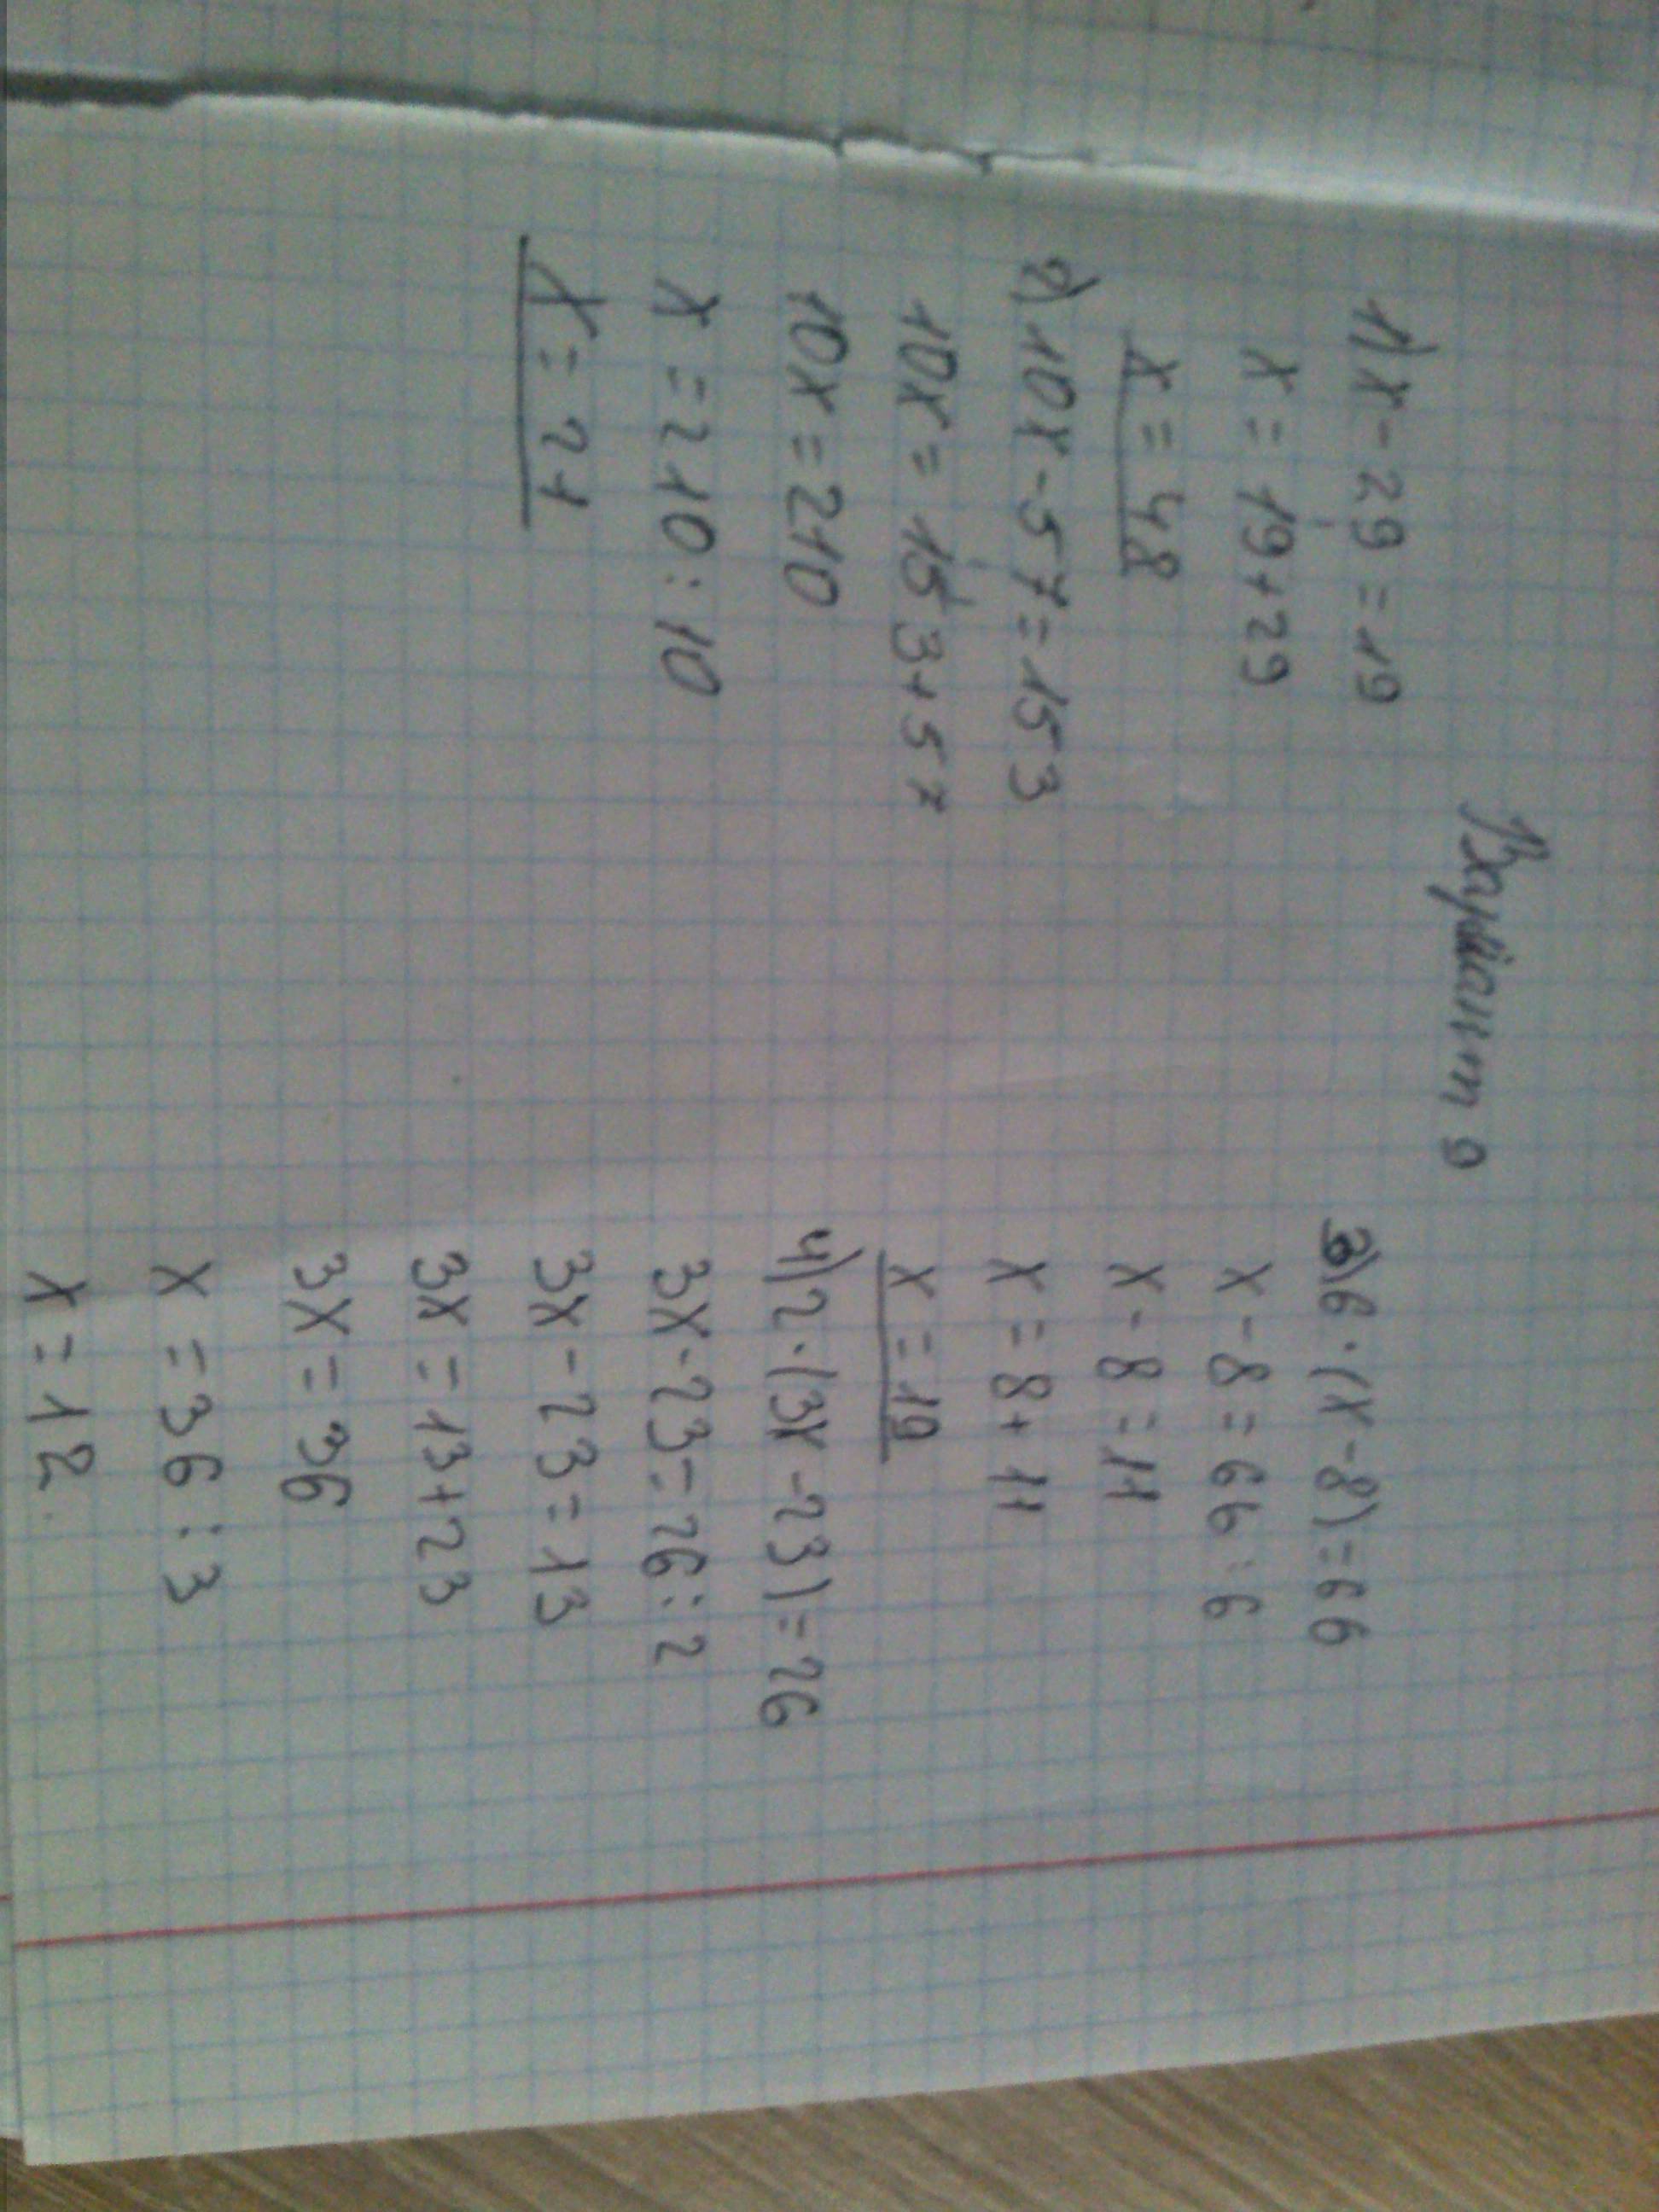 1) x - 29 = 19
x = 19 + 29
x = 48
2) 10x - 57 = 153
10x = 153 + 57
10x = 210
x = 210 : 10
x = 21
3) 6 · (x - 8) = 66
x - 8 = 66 : 6
x - 8 = 11
x = 8 + 11
x = 19
4) 2 · (3x - 23) = 26
3x - 23 = 26 : 2
3x - 23 = 13
3x = 13 + 23
3x = 36
x = 36 : 3
x = 12